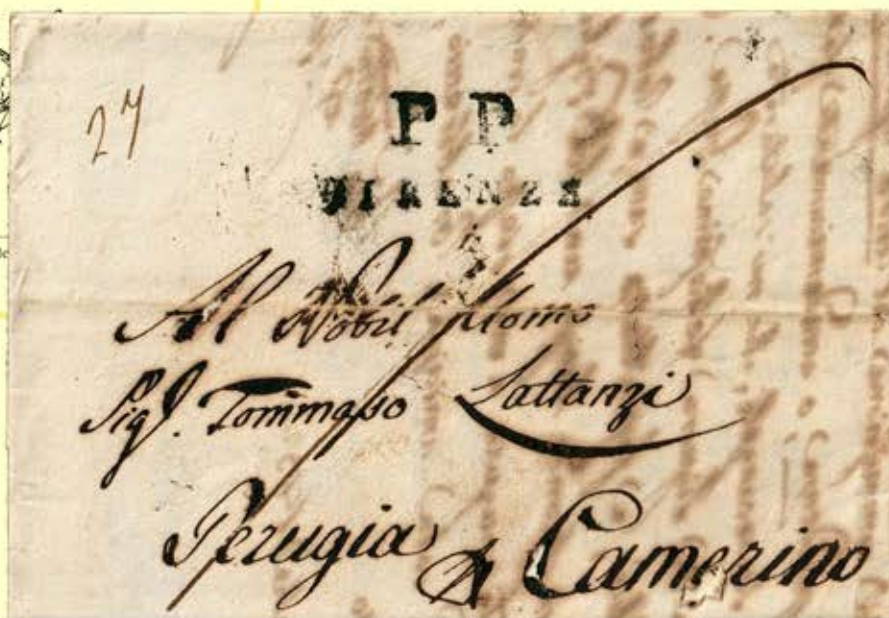 27
P P
FIRENZE
Al Nobil Uomo
Sigr. Tommaso Lattanzi
Perugia Camerino